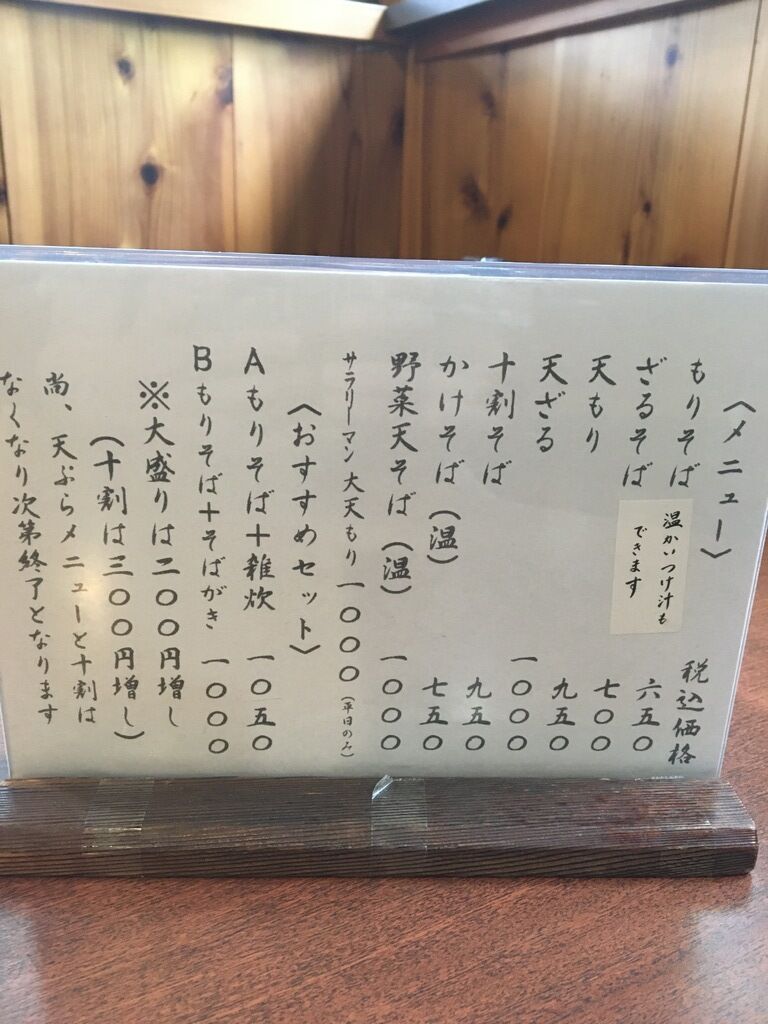 〈メニュー〉 税込価格
もりそば 六五〇
ざるそば 七〇〇
温かいつけ汁も
できます
天もり 九五〇
天ざる 一〇〇〇
十割そば 九五〇
かけそば（温） 七五〇
野菜天そば（温） 一〇〇〇
サラリーマン 大天もり 一〇〇〇（平日のみ）
〈おすすめセット〉
A もりそば＋雑炊 一〇五〇
B もりそば＋そばがき 一〇〇〇
※大盛りは二〇〇円増し
（十割は三〇〇円増し）
尚、天ぷらメニューと十割は
なくなり次第終了となります